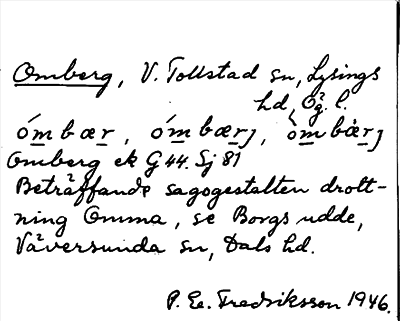 Omberg, V. Tollstad sn, Lysings
hd, Ög. l.
ómbær, ómbærȷ, òmbærȷ
Omberg ek G 44. Sj 81
Beträffande sagogestalten drott-
ning Omma, se Borgs udde,
Väversunda sn, Dals hd.
P. Ee. Fredriksson 1946.